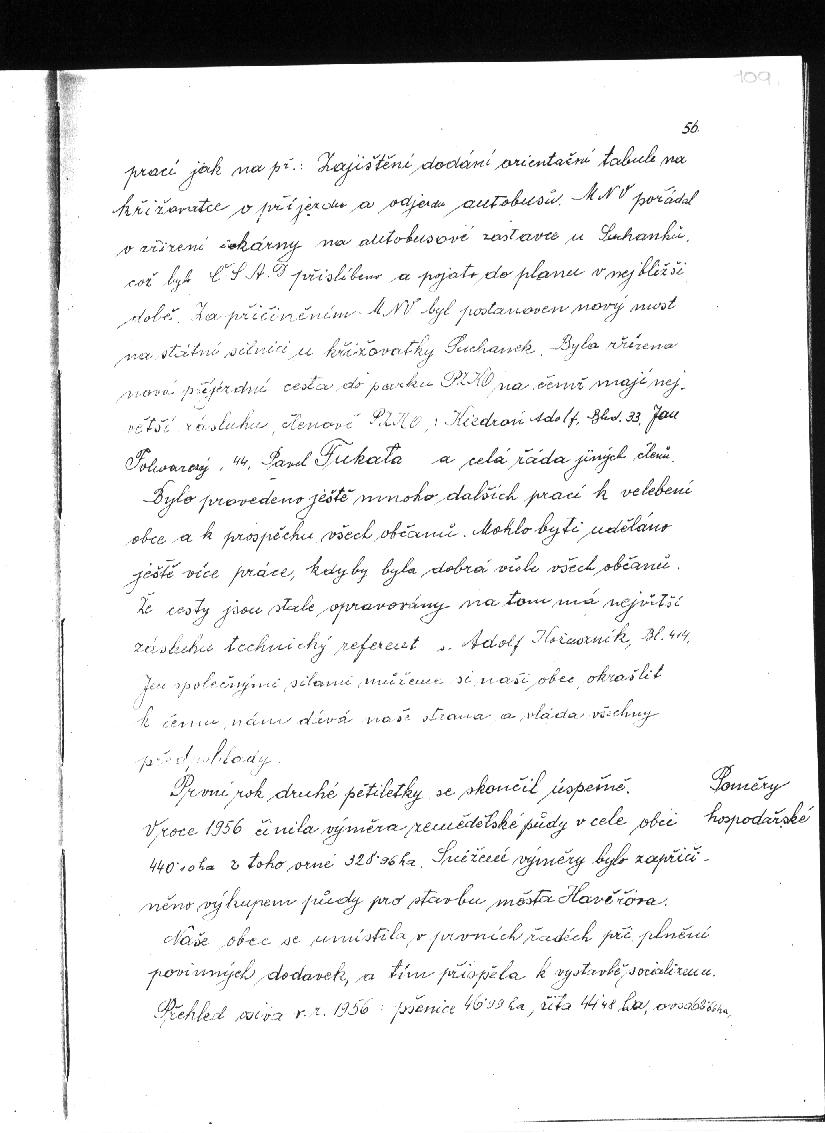 109.
56.
prací jak na př.: Zajištění dodání orientační tabule na
křižovatce o příjezdu a odjezdu autobusů. MNV pořádal
o zřízení čekárny na autobusové zastavce u Suchanků,
což bylo ČSAD přislíbeno a pojato do planu v nejbližší
době. Za přičiněním MNV byl postanoven nový most
na státní silnici u křižovatky Suchanek. Byla zřízena
nová příjezdní cesta do parku PZKO, na čemž mají nej-
větší zásluhu, členové PZKO,: Kiedroń Adolf, Bled. 33, Jan
Folwarczny, 44, Pavel Fukała a celá řáda jiných členů.
Bylo provedeno ještě mnoho dalších prací k velebení
obce a k prospěchu všech občanů. Mohlo byti uděláno
ještě více práce, kdyby byla dobrá vůle všech občanů.
Že cesty jsou stale opravovány na tom má největší
zásluhu technický referent s. Adolf Bl. 414.
Jen společnými silami můžeme si naši obec okrašlit
k čemu nám dává naše strana a vláda všechny
předpoklady.
První rok druhé pětiletky se skončil úspešně. Poměry
V roce 1956 činila výměra zemědělské půdy v cele obci hospodářské
440'10 ha z toho orné 328'96 ha. Snížení výměry bylo zapříči-
něno výkupem půdy pro stavbu města Havířova.
Naše obec se umístila v prvních řadéch při plnění
povinných dodavek, a tím přispěla k vystavbě socializmu.
Přehled osiva v r. 1956: pšenice 46'99 ha, žita 44'48 ha, ovsa